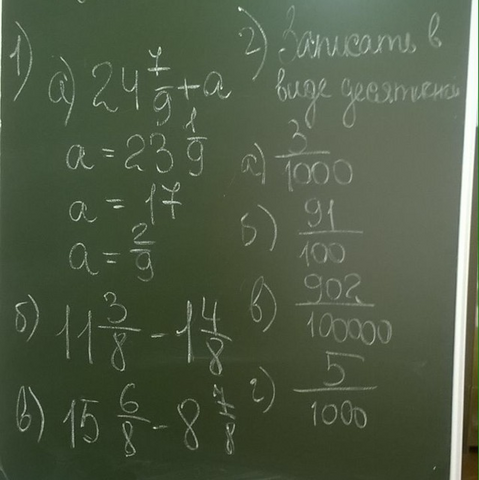 1) а) 24 7/9 + a
a = 23 1/9
a = 17
a = 2/9
б) 11 3/8 - 1 4/8
в) 15 6/8 - 8 7/8
2) Записать в
виде десятичной
а) 3/1000
б) 91/100
в) 902/100000
г) 5/1000